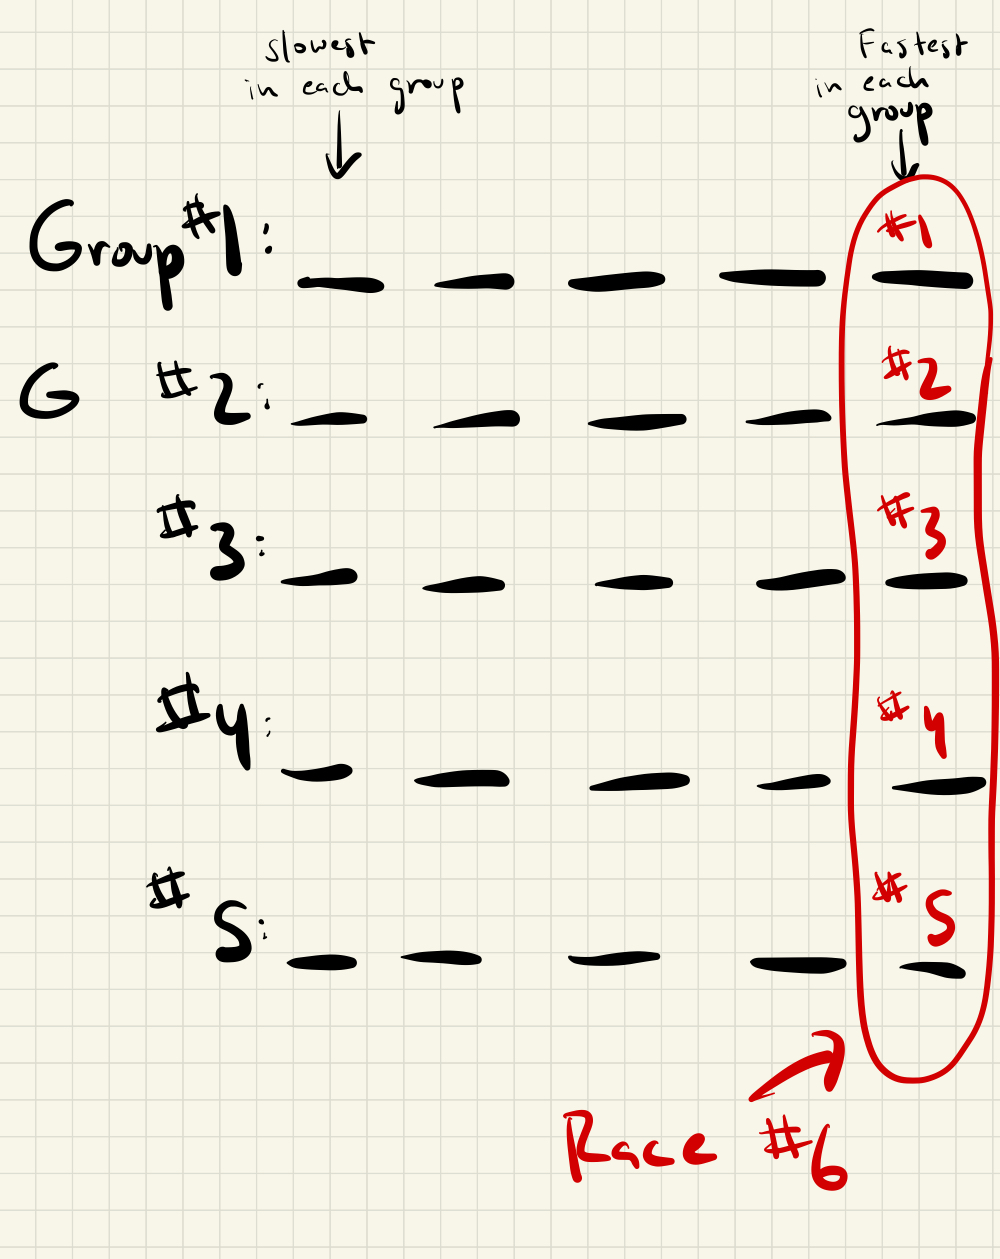 slowest
in each group
Fastest
in each
group
Group #1:
#1
G #2:
#2
#3:
#3
#4:
#4
#5:
#5
Race #6